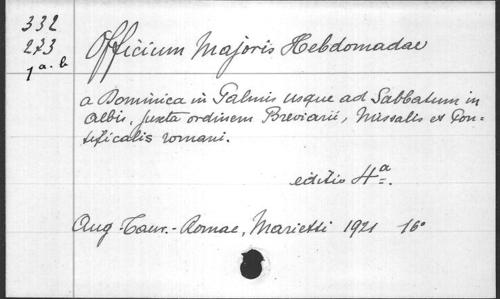 332
273
1 a. b
Officium Majoris Hebdomadae
a Dominica in Palmis usque ad Sabbatum in
albis, juxta ordinem Breviarii, Missalis et Pon-
tificalis romani.
editio 4ª.
Aug. Taur. - Romae, Marietti 1921 16°